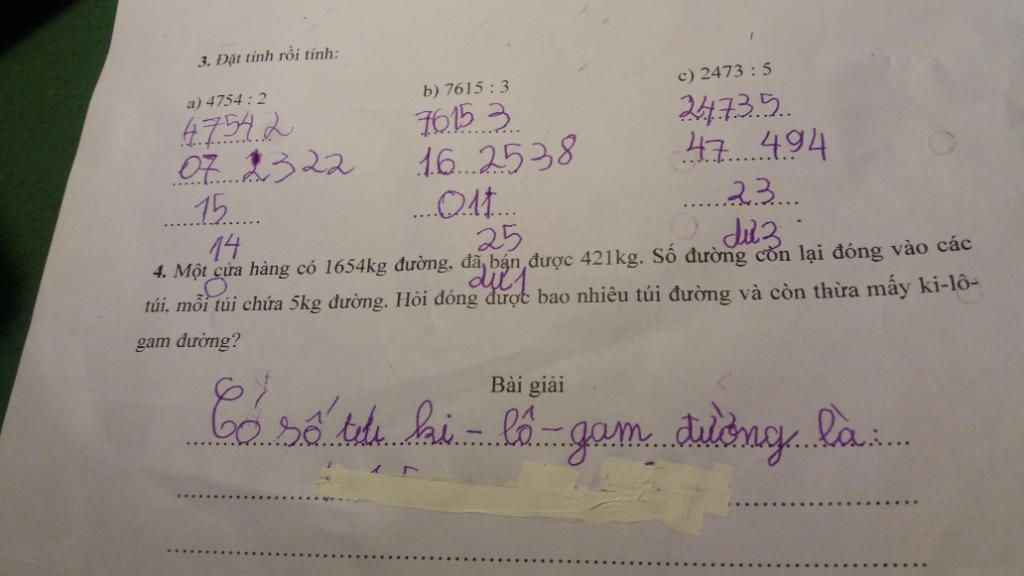 3. Đặt tính rồi tính:
a) 4754 : 2 b) 7615 : 3 c) 2473 : 5
4754 2 7615 3 2473 5
07 2322 16 2538 47 494
15 011 23
14 25 dư 3
0 dư 1
4. Một cửa hàng có 1654kg đường, đã bán được 421kg. Số đường còn lại đóng vào các
túi, mỗi túi chứa 5kg đường. Hỏi đóng được bao nhiêu túi đường và còn thừa mấy ki-lô-
gam đường?
Bài giải
Có số ki-lô-gam đường là: